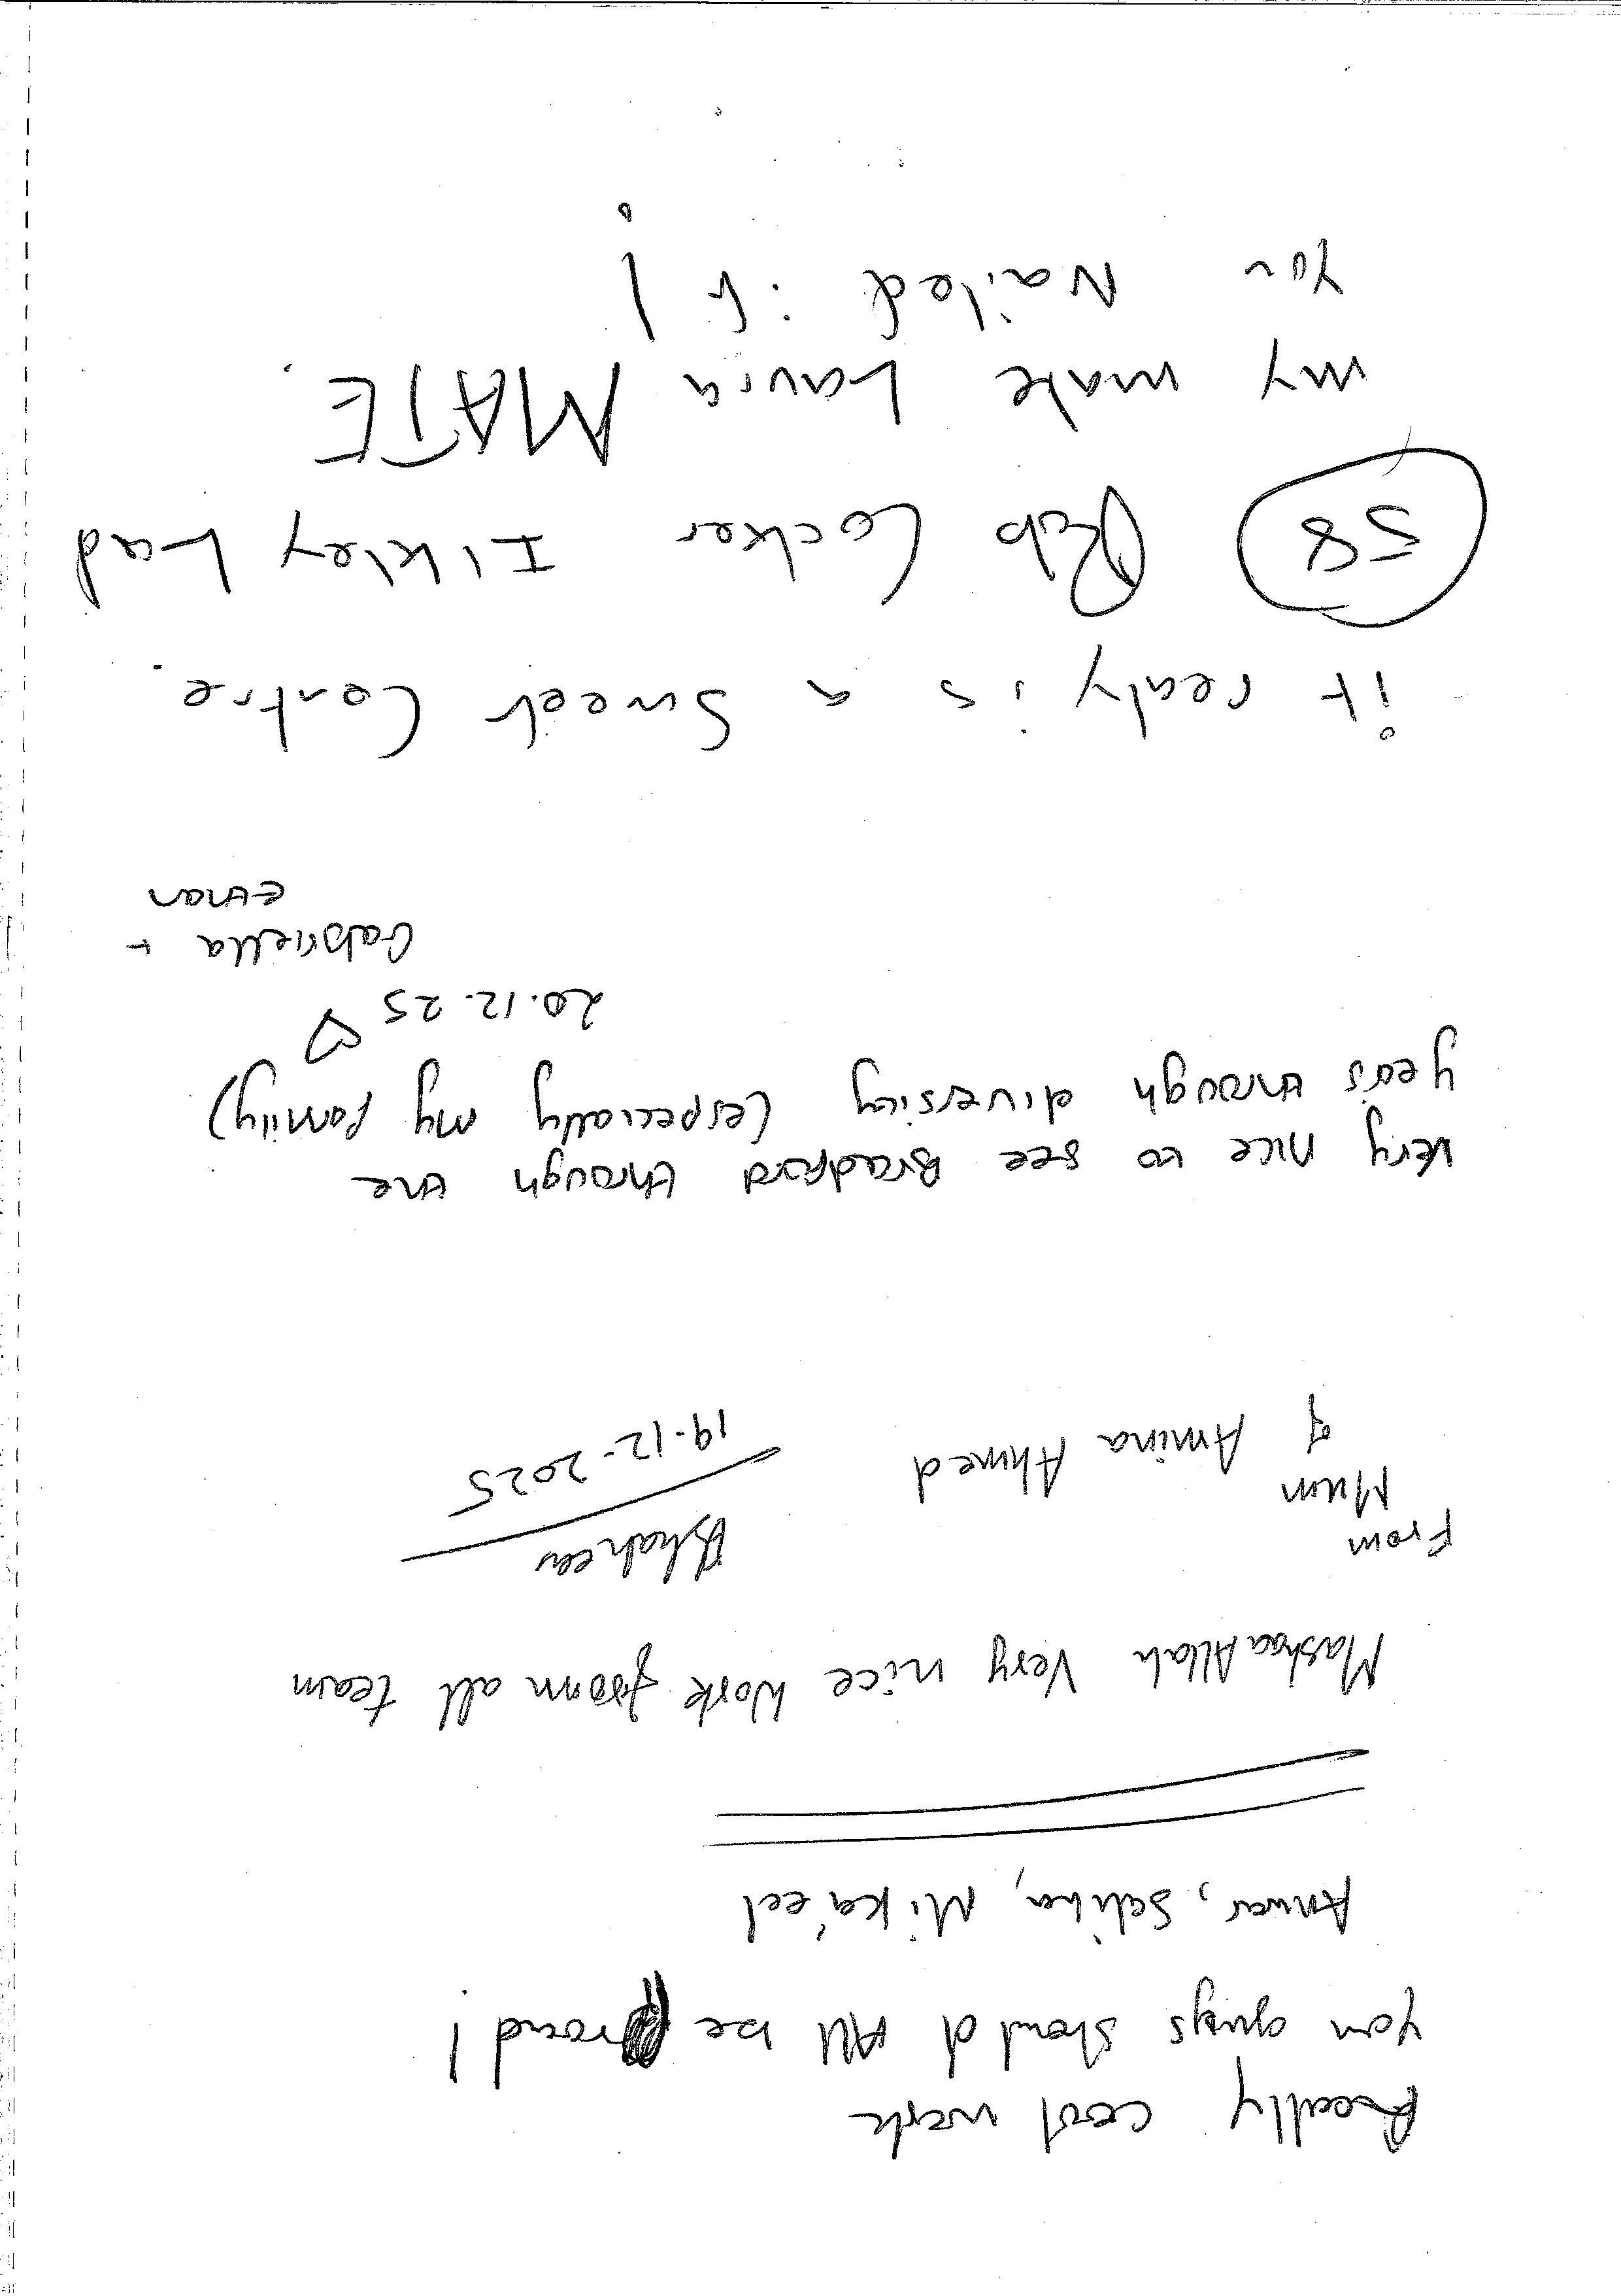 Really cool work
you guys should All be proud!
Anwar, Saliha, Mika'eel
MashaaAllah Very nice work from all team
From
Mum
of Amina Ahmed
19.12.2025
Very nice to see Bradford through the
years through diversity (especially my family)
20.12.25 ♡
Gabriella +
ethan
it realy is a Sweet Centre.
58 Rob Cocker Ilkley Lad
my mate Laura MATE.
you Nailed it!